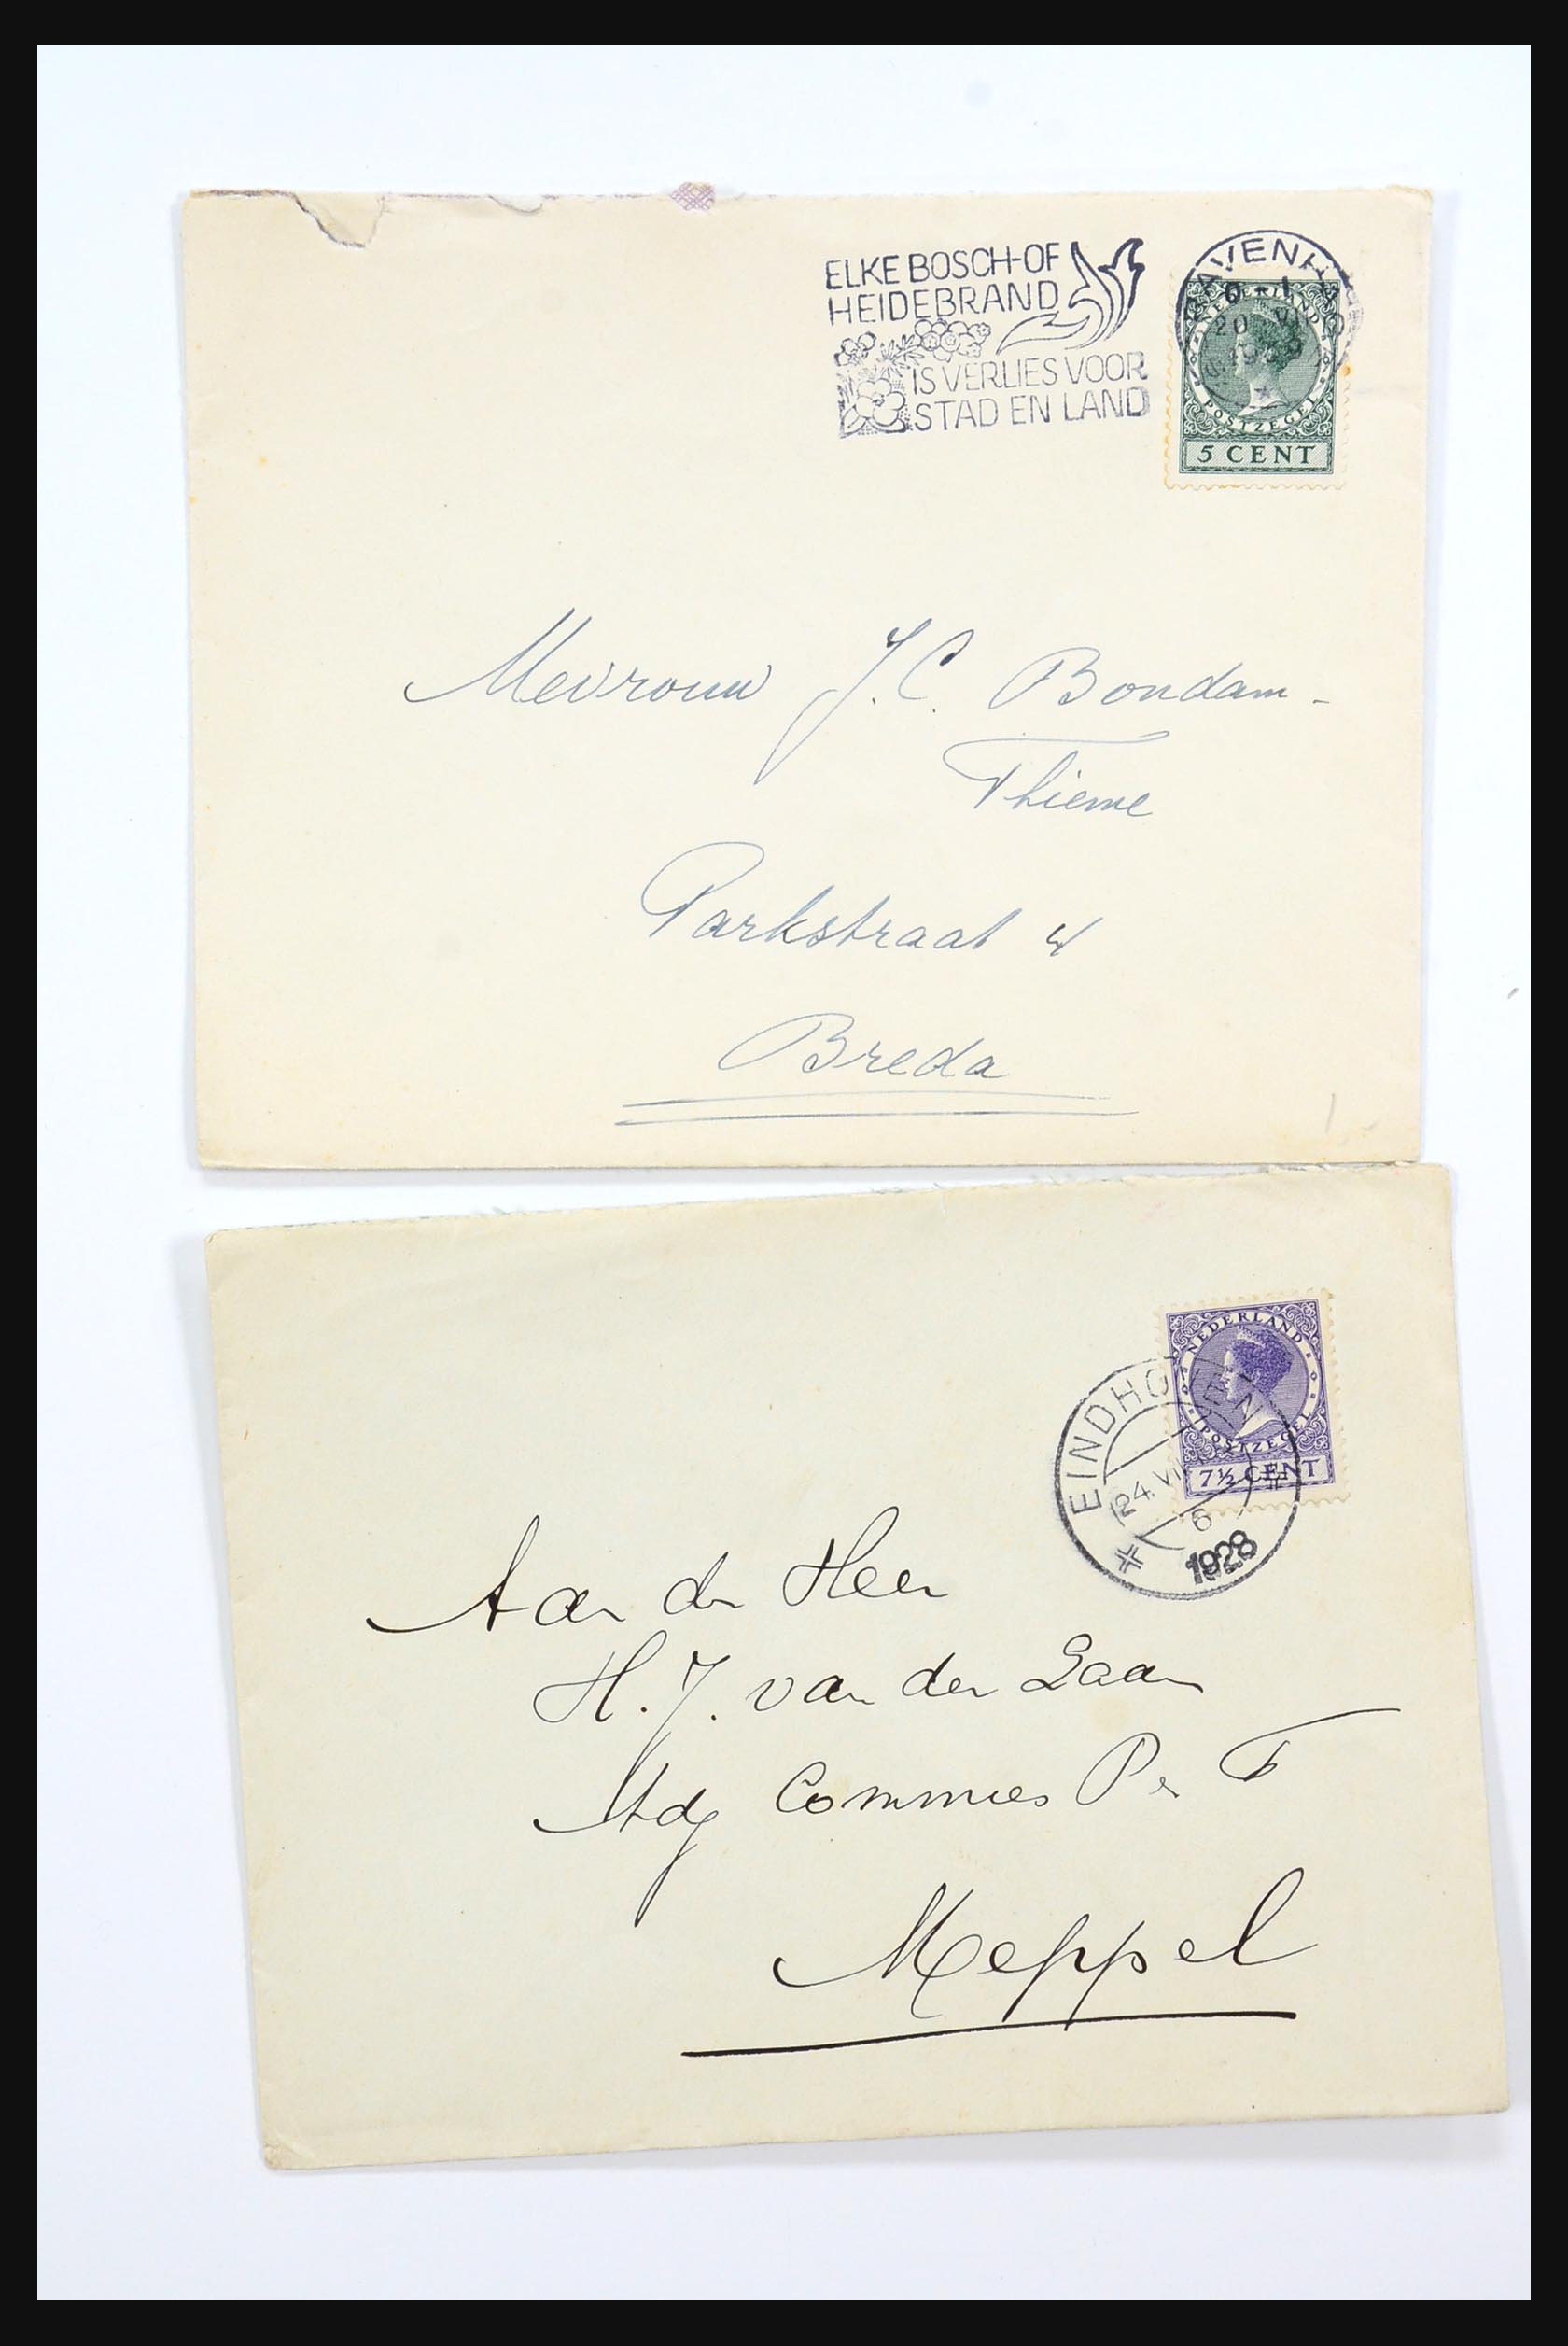 ELKE BOSCH-OF
HEIDEBRAND
IS VERLIES VOOR
STAD EN LAND
NEDERLAND
POSTZEGEL
5 CENT
Mevrouw J. C. Bondam-
Thieme
Parkstraat 4
Breda
NEDERLAND
POSTZEGEL
7½ CENT
EINDHOVEN
24. VI
6
1928
Aan den Heer
H. J. van der Laan
Adj Commies P en T
Meppel